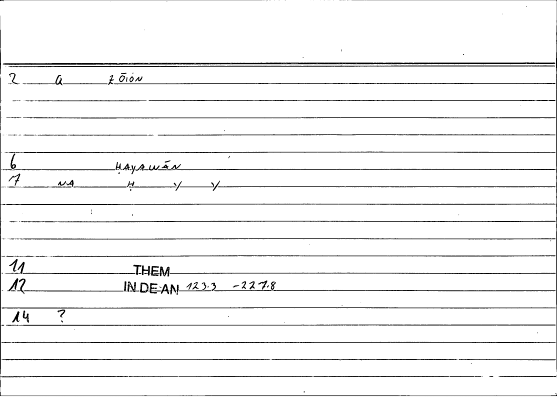 2 a zōion
6 ḥayawān
7 NA ḥ y y
11 THEM
12 IN DE AN 123.3 - 227.8
14 ?